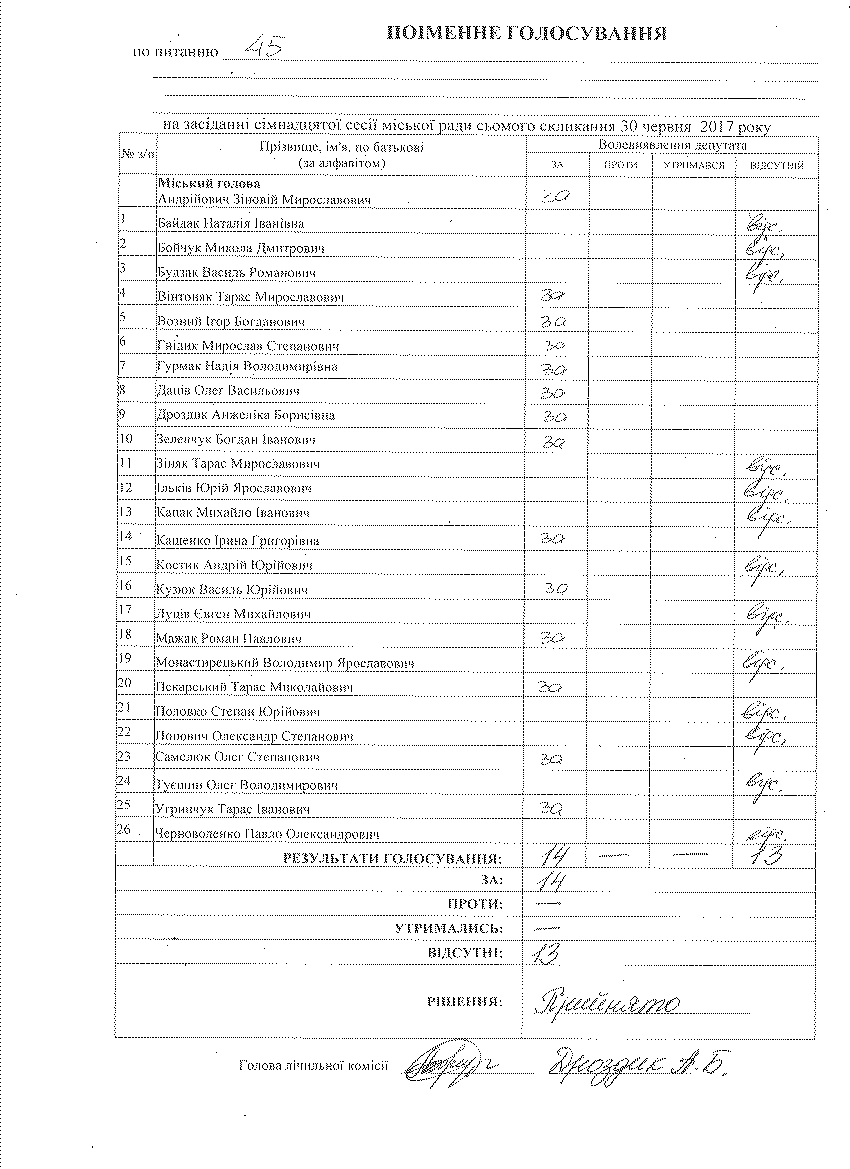 ПОІМЕННЕ ГОЛОСУВАННЯ
по питанню 45
на засіданні сімнадцятої сесії міської ради сьомого скликання 30 червня 2017 року
№ з/п Прізвище, ім'я, по батькові (за алфавітом) Волевиявлення депутата
ЗА ПРОТИ УТРИМАВСЯ ВІДСУТНІЙ
Міський голова
Андрійович Зіновій Мирославович за
1 Байдак Наталія Іванівна відс.
2 Бойчук Микола Дмитрович відс.
3 Будзак Василь Романович відс.
4 Вінтоняк Тарас Мирославович за
5 Возний Ігор Богданович за
6 Гнідик Мирослав Степанович за
7 Гурмак Надія Володимирівна за
8 Даців Олег Васильович за
9 Дроздик Анжеліка Борисівна за
10 Зеленчук Богдан Іванович за
11 Зіняк Тарас Мирославович відс.
12 Ільків Юрій Ярославович відс.
13 Капак Михайло Іванович відс.
14 Кащенко Ірина Григорівна за
15 Костик Андрій Юрійович відс.
16 Кузюк Василь Юрійович за
17 Луців Євген Михайлович відс.
18 Мажак Роман Павлович за
19 Монастирецький Володимир Ярославович відс.
20 Пекарський Тарас Миколайович за
21 Половко Степан Юрійович відс.
22 Попович Олександр Степанович відс.
23 Самелюк Олег Степанович за
24 Олег Володимирович відс.
25 Угринчук Тарас Іванович за
26 Черноволенко Павло Олександрович відс.
РЕЗУЛЬТАТИ ГОЛОСУВАННЯ: 14 — — 13
ЗА: 14
ПРОТИ: —
УТРИМАЛИСЬ: —
ВІДСУТНІ: 13
РІШЕННЯ: Прийнято
Голова лічильної комісії Дроздик А.Б.